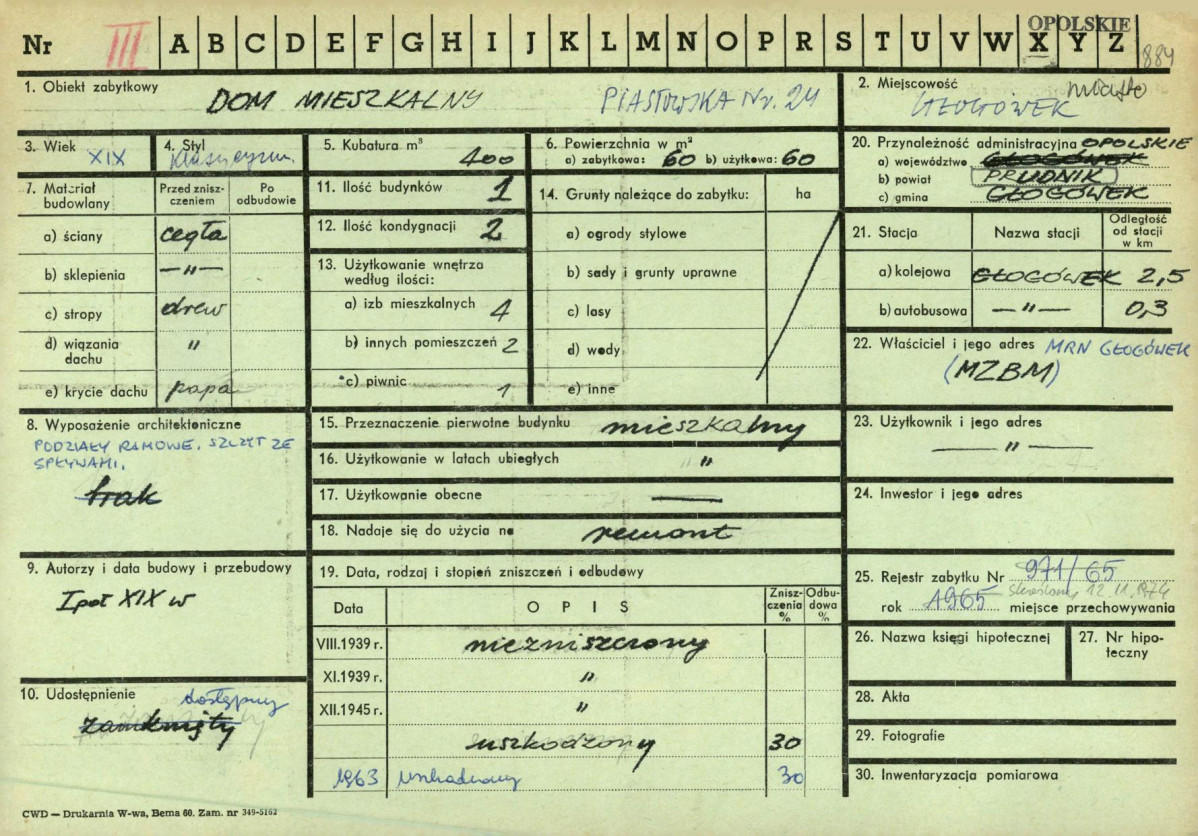 Nr III A B C D E F G H I J K L M N O P R S T U V W X Y Z OPOLSKIE 884
1. Obiekt zabytkowy DOM MIESZKALNY PIASTOWSKA Nr. 24
2. Miejscowość miasto
GŁOGÓWEK
3. Wiek XIX
4. Styl klasycyzm.
5. Kubatura m³ 400
6. Powierzchnia w m²
a) zabytkowa: 60 b) użytkowa: 60
20. Przynależność administracyjna OPOLSKIE
a) województwo GŁOGÓWEK
b) powiat PRUDNIK
c) gmina GŁOGÓWEK
7. Materiał budowlany
Przed zniszczeniem
Po odbudowie
a) ściany cegła
b) sklepienia — " —
c) stropy drew
d) wiązania dachu "
e) krycie dachu papa
11. Ilość budynków 1
12. Ilość kondygnacji 2
13. Użytkowanie wnętrza
według ilości:
a) izb mieszkalnych 4
b) innych pomieszczeń 2
c) piwnic 1
14. Grunty należące do zabytku: ha
a) ogrody stylowe
b) sady i grunty uprawne
c) lasy
d) wody
e) inne
21. Stacja Nazwa stacji Odległość od stacji w km
a) kolejowa GŁOGÓWEK 2,5
b) autobusowa — " — 0,3
22. Właściciel i jego adres MRN GŁOGÓWEK
(MZBM)
8. Wyposażenie architektoniczne
PODZIAŁY RAMOWE. SZCZYT ZE
SPŁYWAMI.
brak
15. Przeznaczenie pierwotne budynku mieszkalny
16. Użytkowanie w latach ubiegłych "
17. Użytkowanie obecne —
18. Nadaje się do użycia na remont
23. Użytkownik i jego adres
— " —
24. Inwestor i jego adres
9. Autorzy i data budowy i przebudowy
I poł XIX w
10. Udostępnienie dostępny
zamknięty
19. Data, rodzaj i stopień zniszczeń i odbudowy
Data OPIS Zniszczenia % Odbudowa %
VIII.1939 r. niezniszczony
XI.1939 r. "
XII.1945 r. "
uszkodzony 30
1963 uszkodzony 30
25. Rejestr zabytku Nr 971/65
skreślony 12.11.1974
rok 1965 miejsce przechowywania
26. Nazwa księgi hipotecznej
27. Nr hipoteczny
28. Akta
29. Fotografie
30. Inwentaryzacja pomiarowa
CWD — Drukarnia W-wa, Bema 60. Zam. nr 349-5162